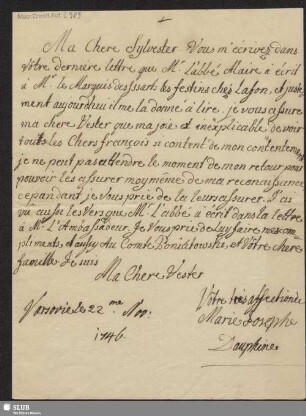 Mscr.Dresd.Ast. 2,303
Ma Chere Sylvester Vous m'écrivez dans
vôtre derniere lettre que Mr. L'abbé Alaire a écrit
à Mr. le Marquis des Issarts les festins chez la son, et juste
ment aujourdhui il me la donné à lire. je vous assure
ma chere Vester que ma joie et inexplicable de voir
touts les Chers françois si content de mon contentement
je ne peut pas attendre le moment de mon retour pour
pouvoir les assurer moy même de ma reconnaissance
cependant je vous prie de les leur assurer. J'ai
vu aussi les vers que Mr. l'abbé a écrit dans la lettre
à Mr. L'Ambassadeur. Je vous prie de luy faire mes com
pliments, et aussy Au Comte Poniatowski, et Vôtre chere
famille Je suis
Ma Chere Vester
Varsovie le 22 me Nov:
1746.
Vôtre très affectionée
Marie Josephe
Dauphine
SLUB